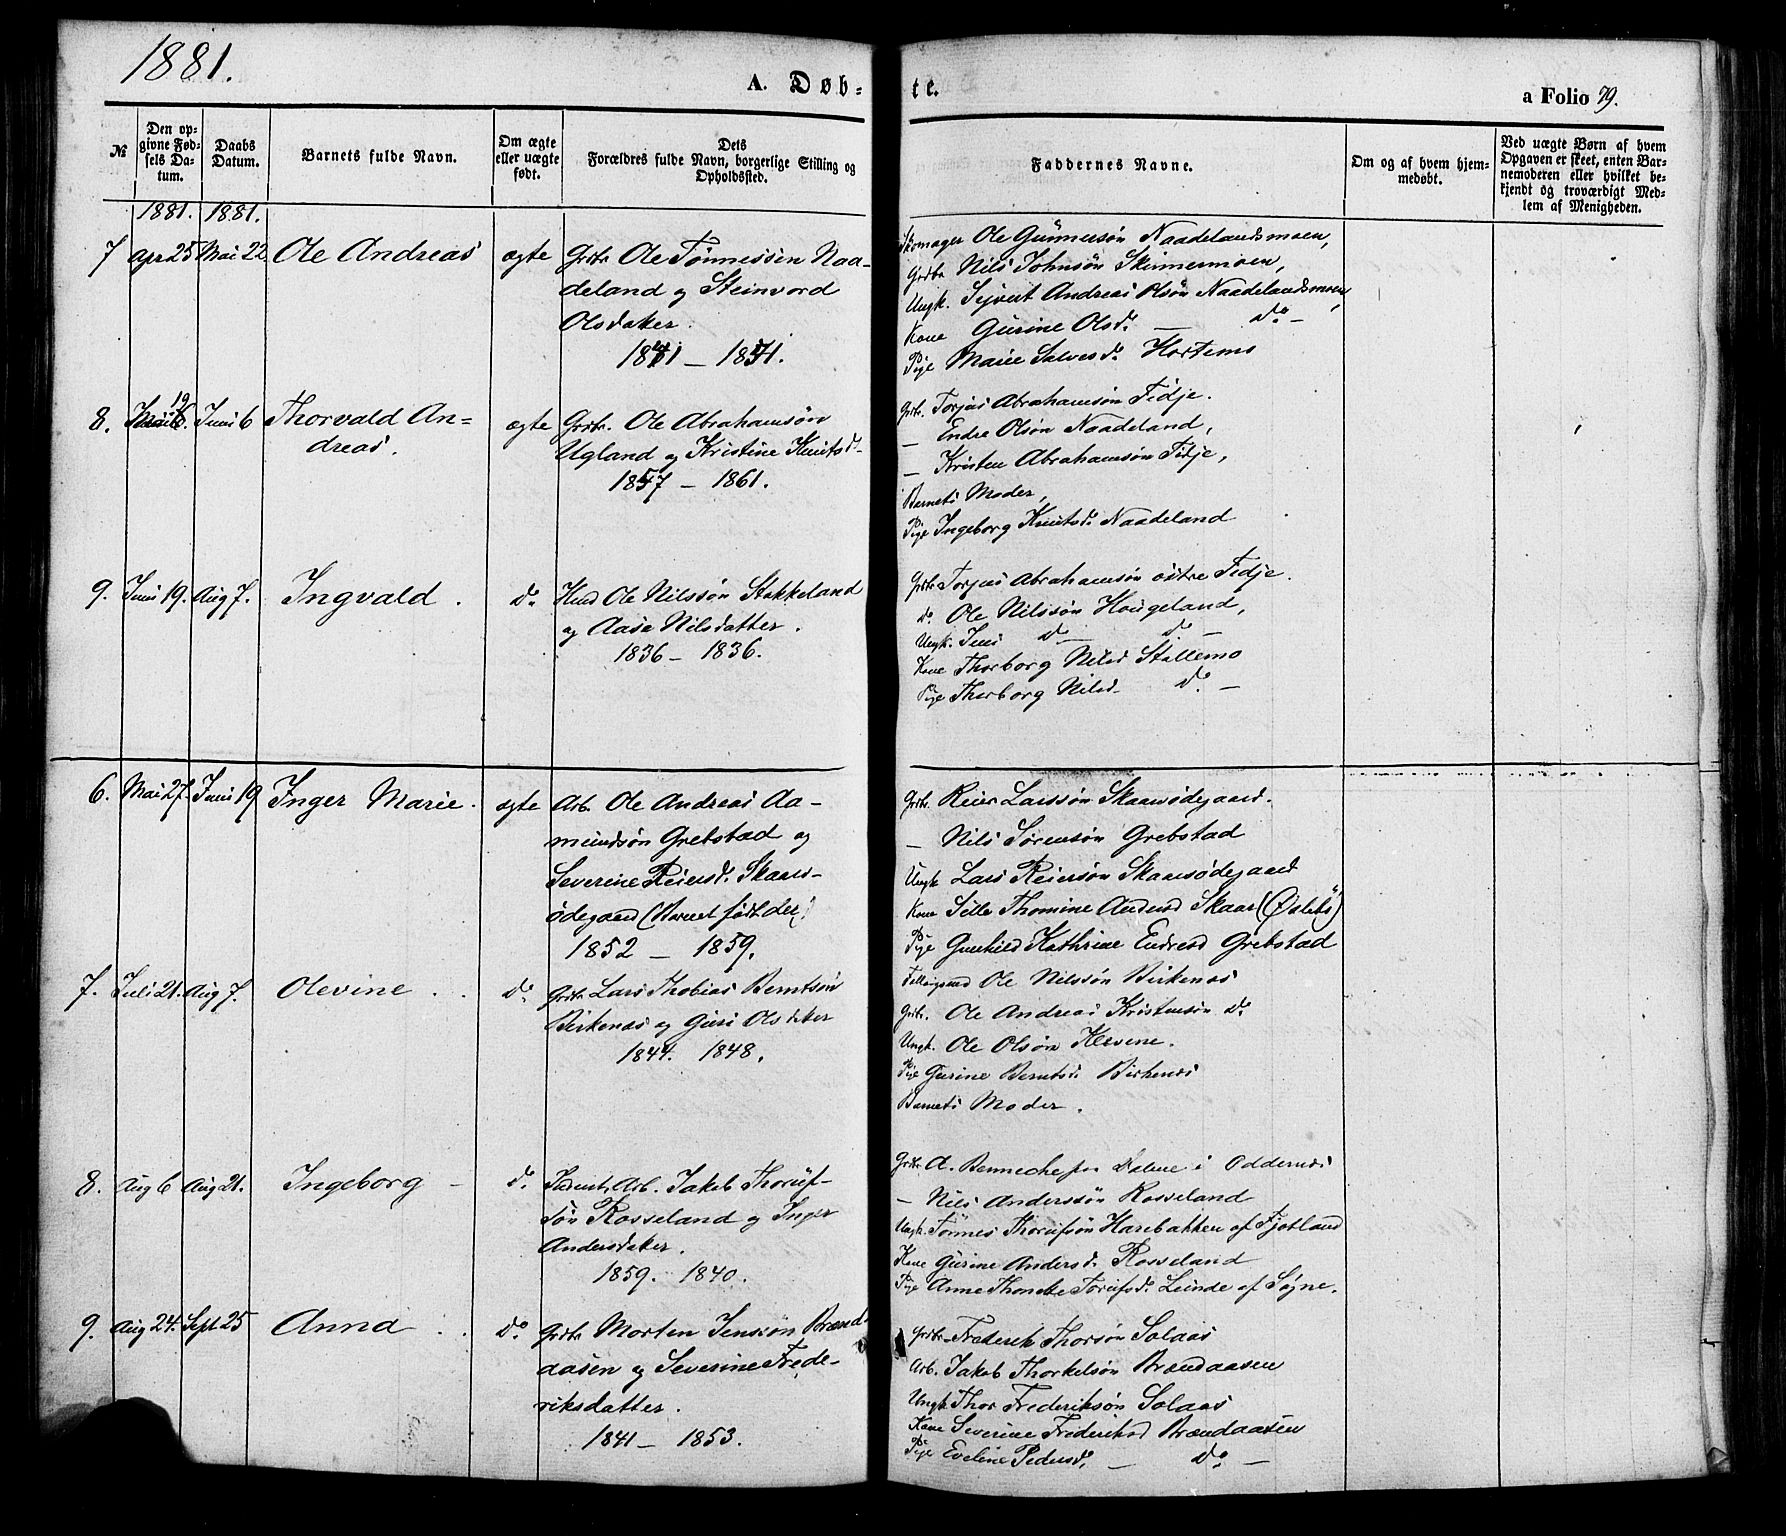 1881.
A. Døb-
te.
a Folio 79.
№
Den op-
givne Fød-
sels Da-
tum.
Daabs
Datum.
Barnets fulde Navn.
Om ægte
eller uægte
født.
Dets
Forældres fulde Navn, borgerlige Stilling og
Opholdssted.
Faddernes Navne.
Om og af hvem hjem-
medøbt.
Ved uægte Børn af hvem
Opgaven er skeet, enten Bar-
nemoderen eller hvilket be-
kjendt og troværdigt Med-
lem af Menigheden.
1881. 1881.
7 Apr 25 Mai 22 Ole Andreas ægte Grdbr. Ole Tønnessen Naa-
deland og Steinvord
Olsdatter.
1841 – 1851.
Skomager Ole Gunnersøn Naadelandsmoen,
Grdbr Nils Johnsøn Skinnermoen,
Ungk. Sejvert Andreas Olsøn Naadelandsmoen,
Kone Gurine Olsd. — Do –
Pige Marie Salvesd. Hortemo
8. 19 Juni 6 Thorvald An-
dreas.
ægte Grdbr. Ole Abrahamsøn
Ugland og Kristine Knutsd.
1857 – 1861.
Grdbr. Torjus Abrahamsøn Fidje.
— Endre Olsøn Naadeland,
— Kristen Abrahamsøn Fidje,
Barnets Moder,
Pige Ingeborg Knutsd. Naadeland
9. Juni 19. Aug 7. Ingvald. Do. Husmd Ole Nilssøn Stokkeland
og Aase Nilsdatter.
1836 – 1836.
Grdbr Torjus Abrahamsøn østre Fidje.
do. Ole Nilssøn Hougeland,
Ungk. Jens do — do –
Kone Thorborg Nilsd Stallemo
Pige Thorborg Nilsd. Do. –
6. Mai 27. Juni 19 Inger Marie. ægte Arb. Ole Andreas Aa-
mundsøn Grebstad og
Severine Reiersd. Skaars-
ødegaard (Barnet født der)
1852 – 1859.
Grdbr. Reier Larssøn Skaarsødegaard.
— Nils Sørensøn Grebstad
Ungk Lars Reiersøn Skaarsødegaard
Kone Sille Thomine Andersd Skaar (Øslebø)
Pige Gunhild Kathrine Endresd Grebstad
7. Juli 21. Aug 7. Olevine . . Do. Grdbr Lars Thobias Berntsøn
Birkenæs og Guri Olsdatter
1844. 1848.
Ole Nilssøn Birkenæs
Grdbr. Ole Andreas Kristensøn do
Ungk. Ole Olsøn
Pige Gurine Berntsd. Birkenæs
Barnets Moder.
8. Aug 6 Aug 21. Ingeborg – do. Arb. Jakob Thoruf-
søn Rosseland og Inger
Andersdatter.
1859. 1840.
Grdbr A. Benneche paa Dalene i Oddernes
— Nils Anderssøn Rosseland
Ungk. Tønnes Thorufsøn Harebakken af Fjotland
Kone Gurine Andersd. Rosseland
Pige Anne Thonette Torufsd. Lunde af Søgne.
9. Aug 24. Sept 25 Anna . . Do. Grdbr Morten Jenssøn Brænd-
aasen og Severine Frede-
riksdatter.
1841 – 1853.
Grdbr Frederik Thorsøn Solaas
Arb. Jakob Thorkelsøn Brændaasen
Ungk Thor Frederiksøn Solaas
Kone Severine Frederiksd Brændaasen
Pige Eveline Pedersd. – Do. –